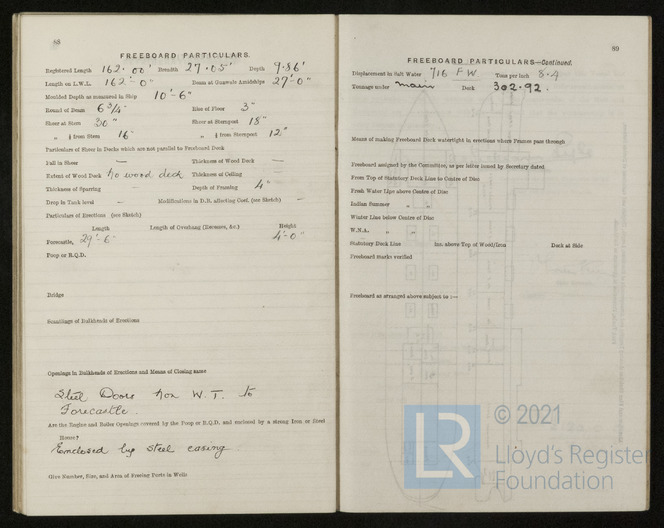 88
FREEBOARD PARTICULARS.
Registered Length 162.00' Breadth 27.05' Depth 9.86'
Length on L.W.L. 162'-0" Beam at Gunwale Amidships 27'-0"
Moulded Depth as measured in Ship 10'-6"
Round of Beam 6 3/4" Rise of Floor 3"
Sheer at Stem 30" Sheer at Sternpost 18"
" from Stem 16" " from Sternpost 12"
Particulars of Sheer in Decks which are not parallel to Freeboard Deck
Fall in Sheer — Thickness of Wood Deck —
Extent of Wood Deck No wood deck Thickness of Ceiling —
Thickness of Sparring — Depth of Framing 4"
Drop in Tank level — Modifications in D.B. affecting Coef. (see Sketch) —
Particulars of Erections (see Sketch)
Length Length of Overhang (Recesses, &c.) Height
Forecastle, 29'-6" 4'-0"
Poop or R.Q.D.
Bridge
Scantlings of Bulkheads of Erections
Openings in Bulkheads of Erections and Means of Closing same
Steel Doors Non W.T. to
Forecastle.
Are the Engine and Boiler Openings covered by the Poop or R.Q.D. and enclosed by a strong Iron or Steel
House?
Enclosed by steel casing
Give Number, Size, and Area of Freeing Ports in Wells
89
FREEBOARD PARTICULARS—Continued.
Displacement in Salt Water 716 FW Tons per Inch 8.4
Tonnage under main Deck 302.92.
Means of making Freeboard Deck watertight in erections where Frames pass through
Freeboard assigned by the Committee, as per letter issued by Secretary dated
From Top of Statutory Deck Line to Centre of Disc
Fresh Water Line above Centre of Disc
Indian Summer " "
Winter Line below Centre of Disc
W.N.A. " "
Statutory Deck Line ins. above Top of Wood/Iron Deck at Side
Freeboard marks verified
Freeboard as arranged above subject to :—
LR
© 2021
Lloyd's Register
Foundation